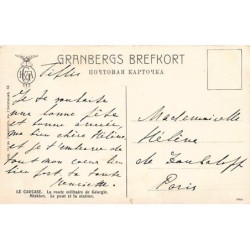 GRANBERGS BREFKORT
ПОЧТОВАЯ КАРТОЧКА
Tiflis
Je te souhaite
une bonne fête
et bonne année,
ma bien chère Hélène
et je t'embrasse de
tout mon coeur bien
bien fort, ta tante
Henriette.
Mademoiselle
Hélène
de
Paris
LE CAUCASE. La route militaire de Géorgie.
Mlekhet. Le pont et la station.